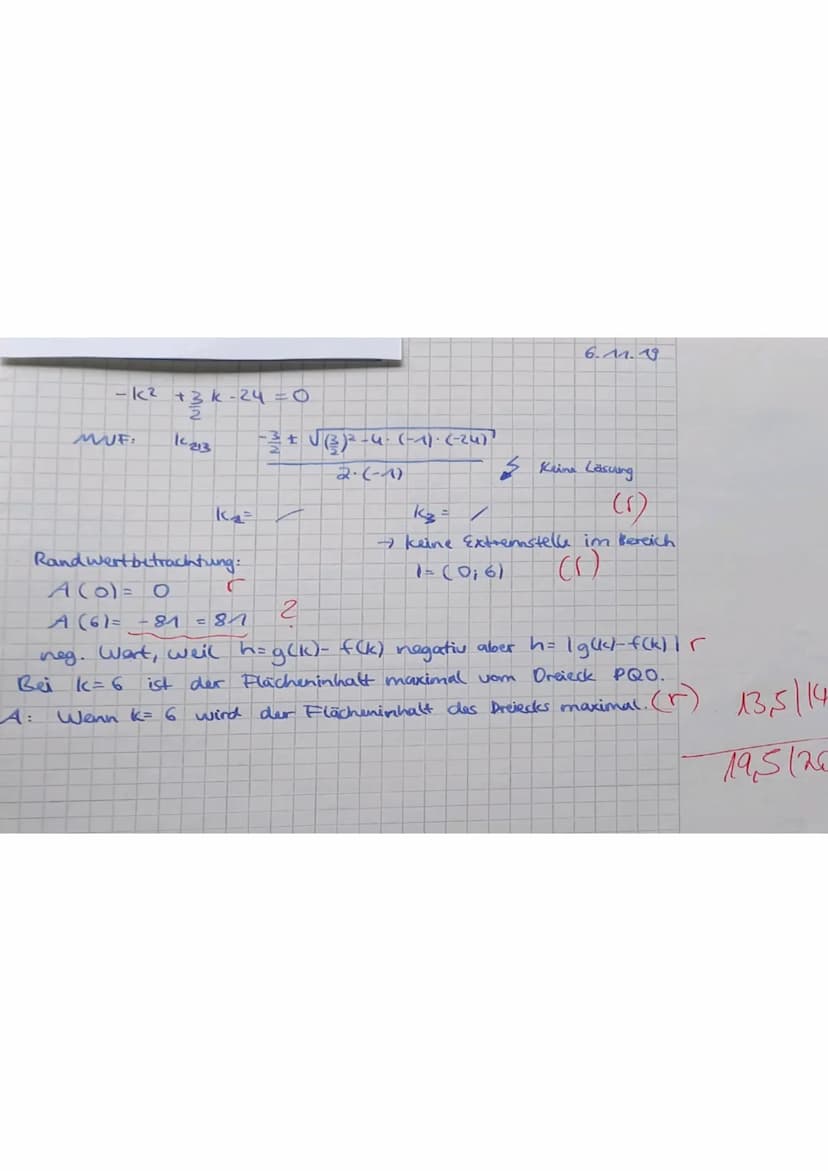 6.11.19
-k² + 3/2 k - 24 = 0
MNF: k2/3 (-3/2 ± √((3/2)² - 4·(-1)·(-24))) / (2·(-1)) ↯ Keine Lösung
k2= / k3= / (r)
→ keine Extremstelle im Bereich
Randwertbetrachtung: I=(0;6) (r)
A(0)= 0 r
A(6)= -81 = 81 ?
neg. Wert, weil h=g(k)-f(k) negativ aber h=|g(k)-f(k)| r
Bei k=6 ist der Flächeninhalt maximal vom Dreieck PQO.
A: Wenn k=6 wird der Flächeninhalt des Dreiecks maximal. (r) 13,5|14
19,5|20